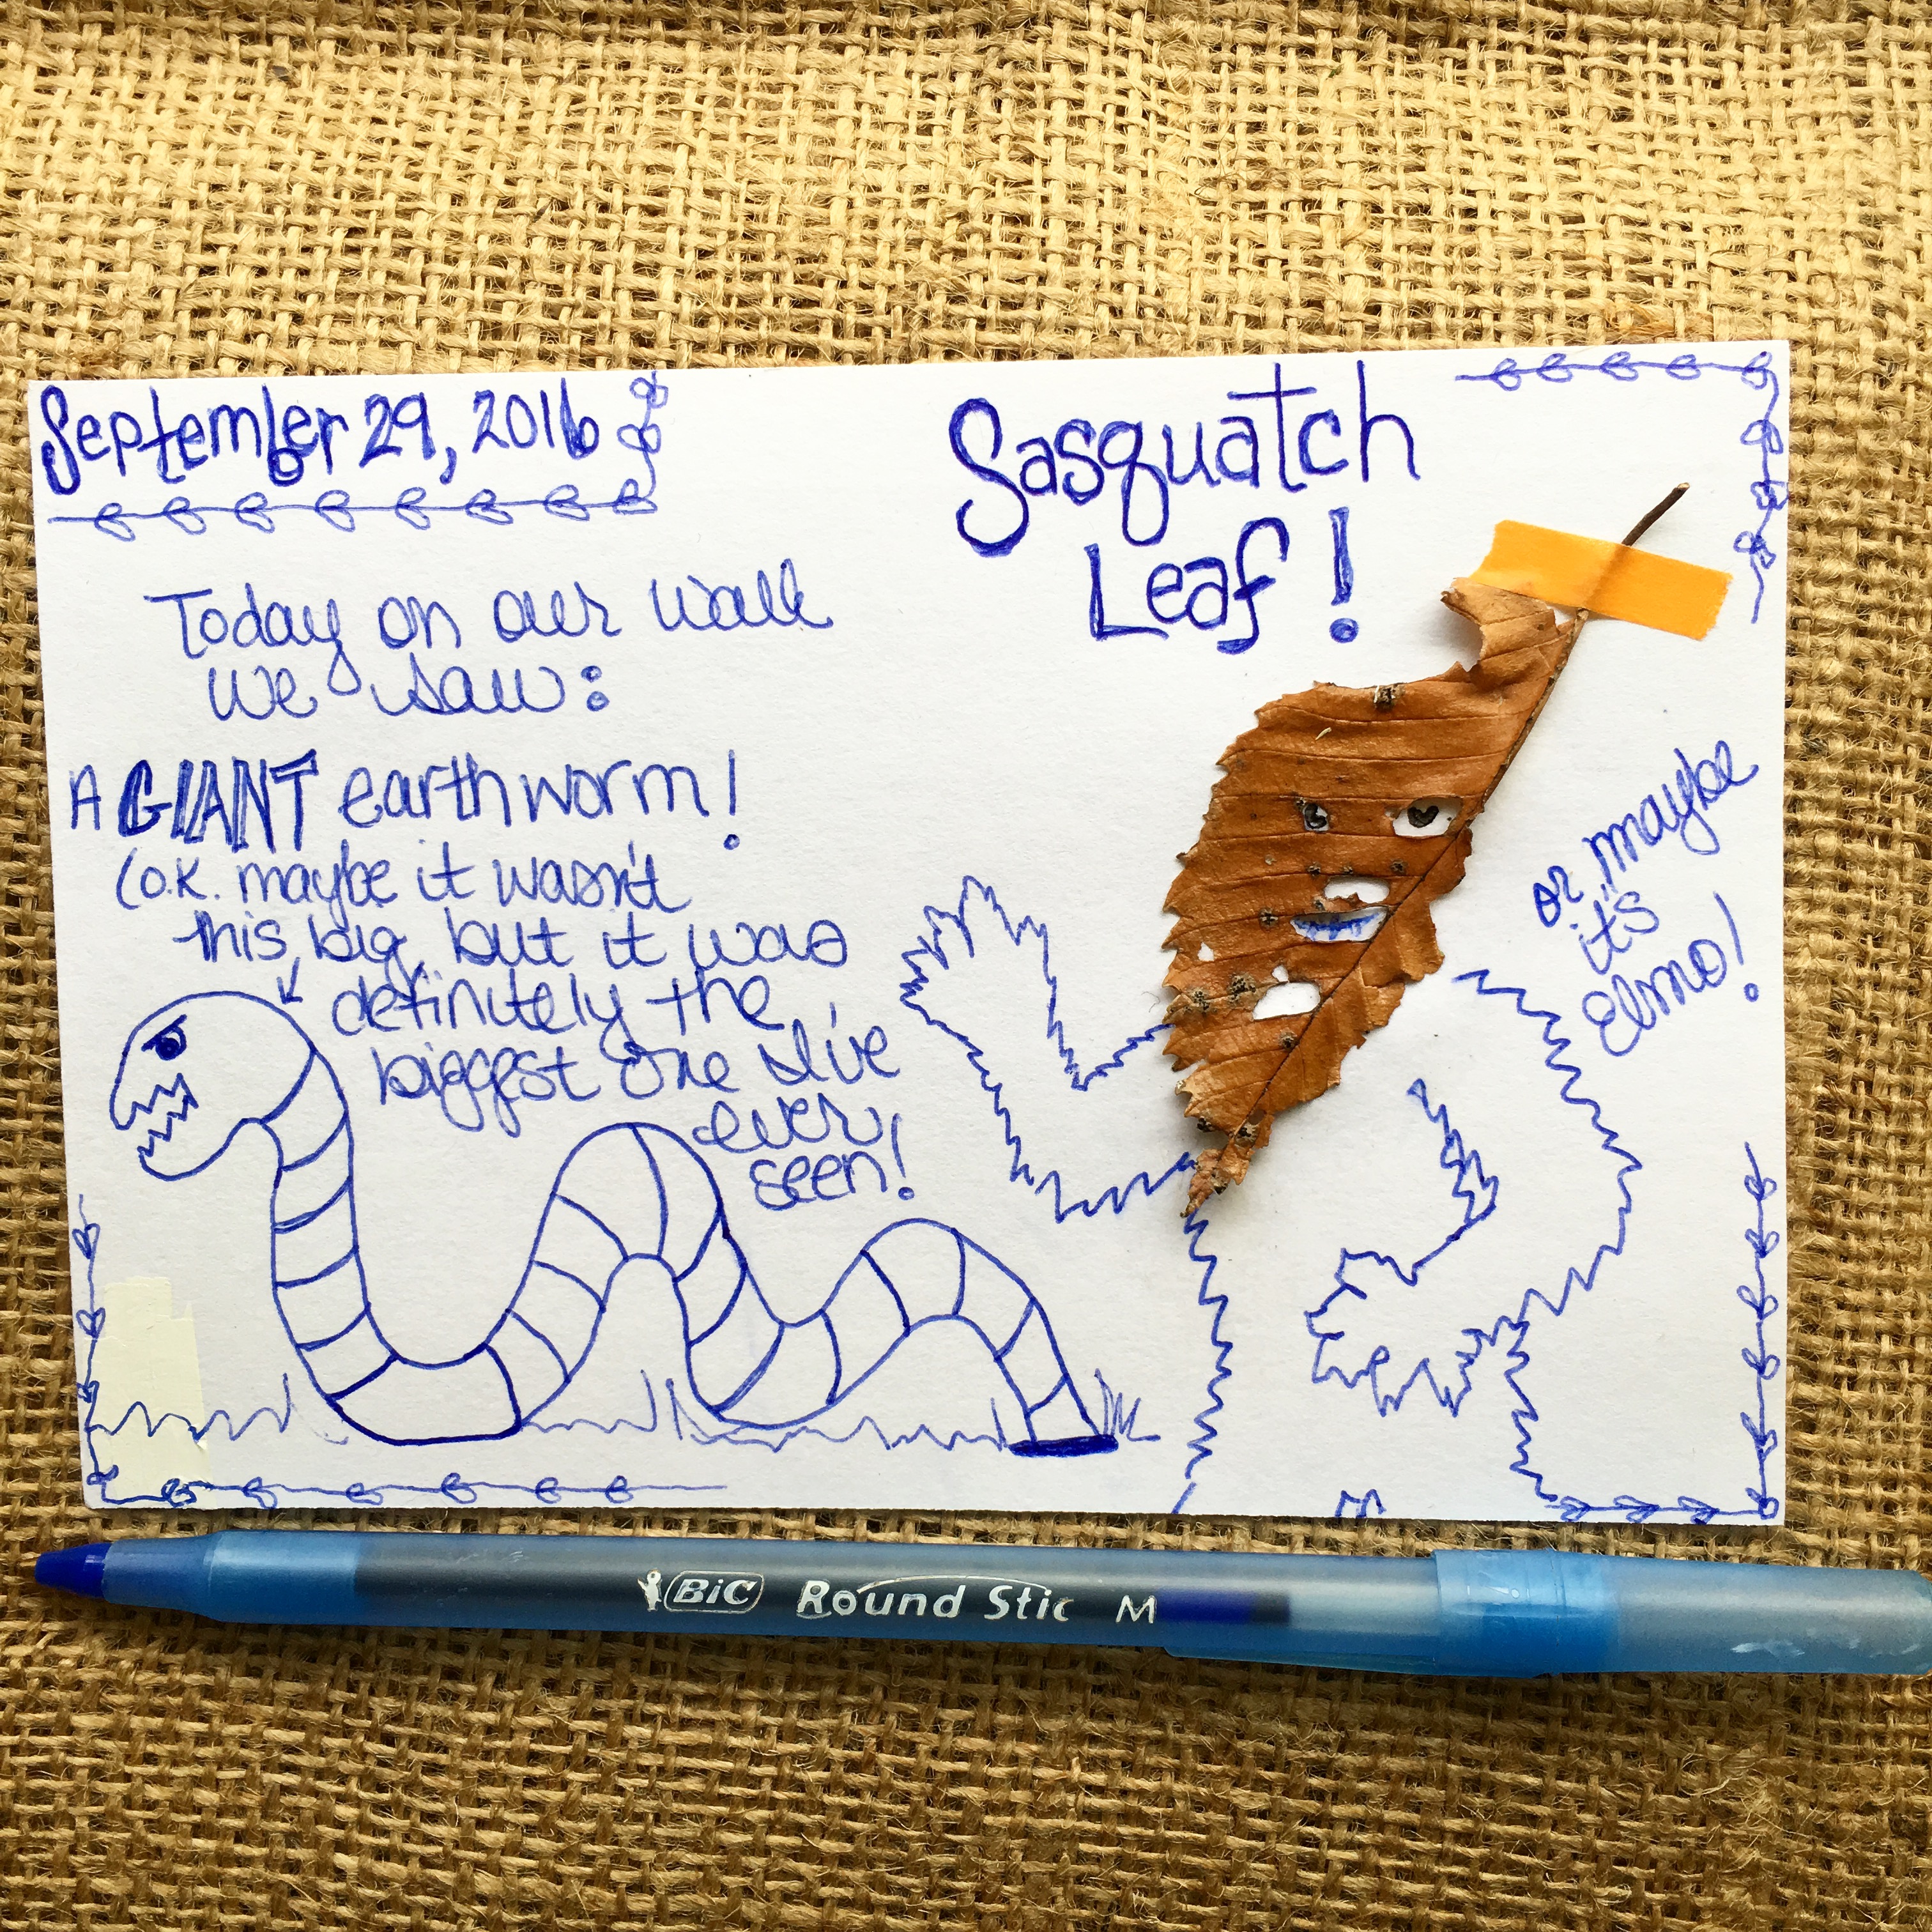 September 29, 2016
Today on our walk
we saw:
A GIANT earthworm!
(O.K. maybe it wasn't
this big, but it was
definitely the
biggest one I've
ever
seen!
Sasquatch
Leaf!
or maybe
it's
Elmo!
BIC Round Stic M